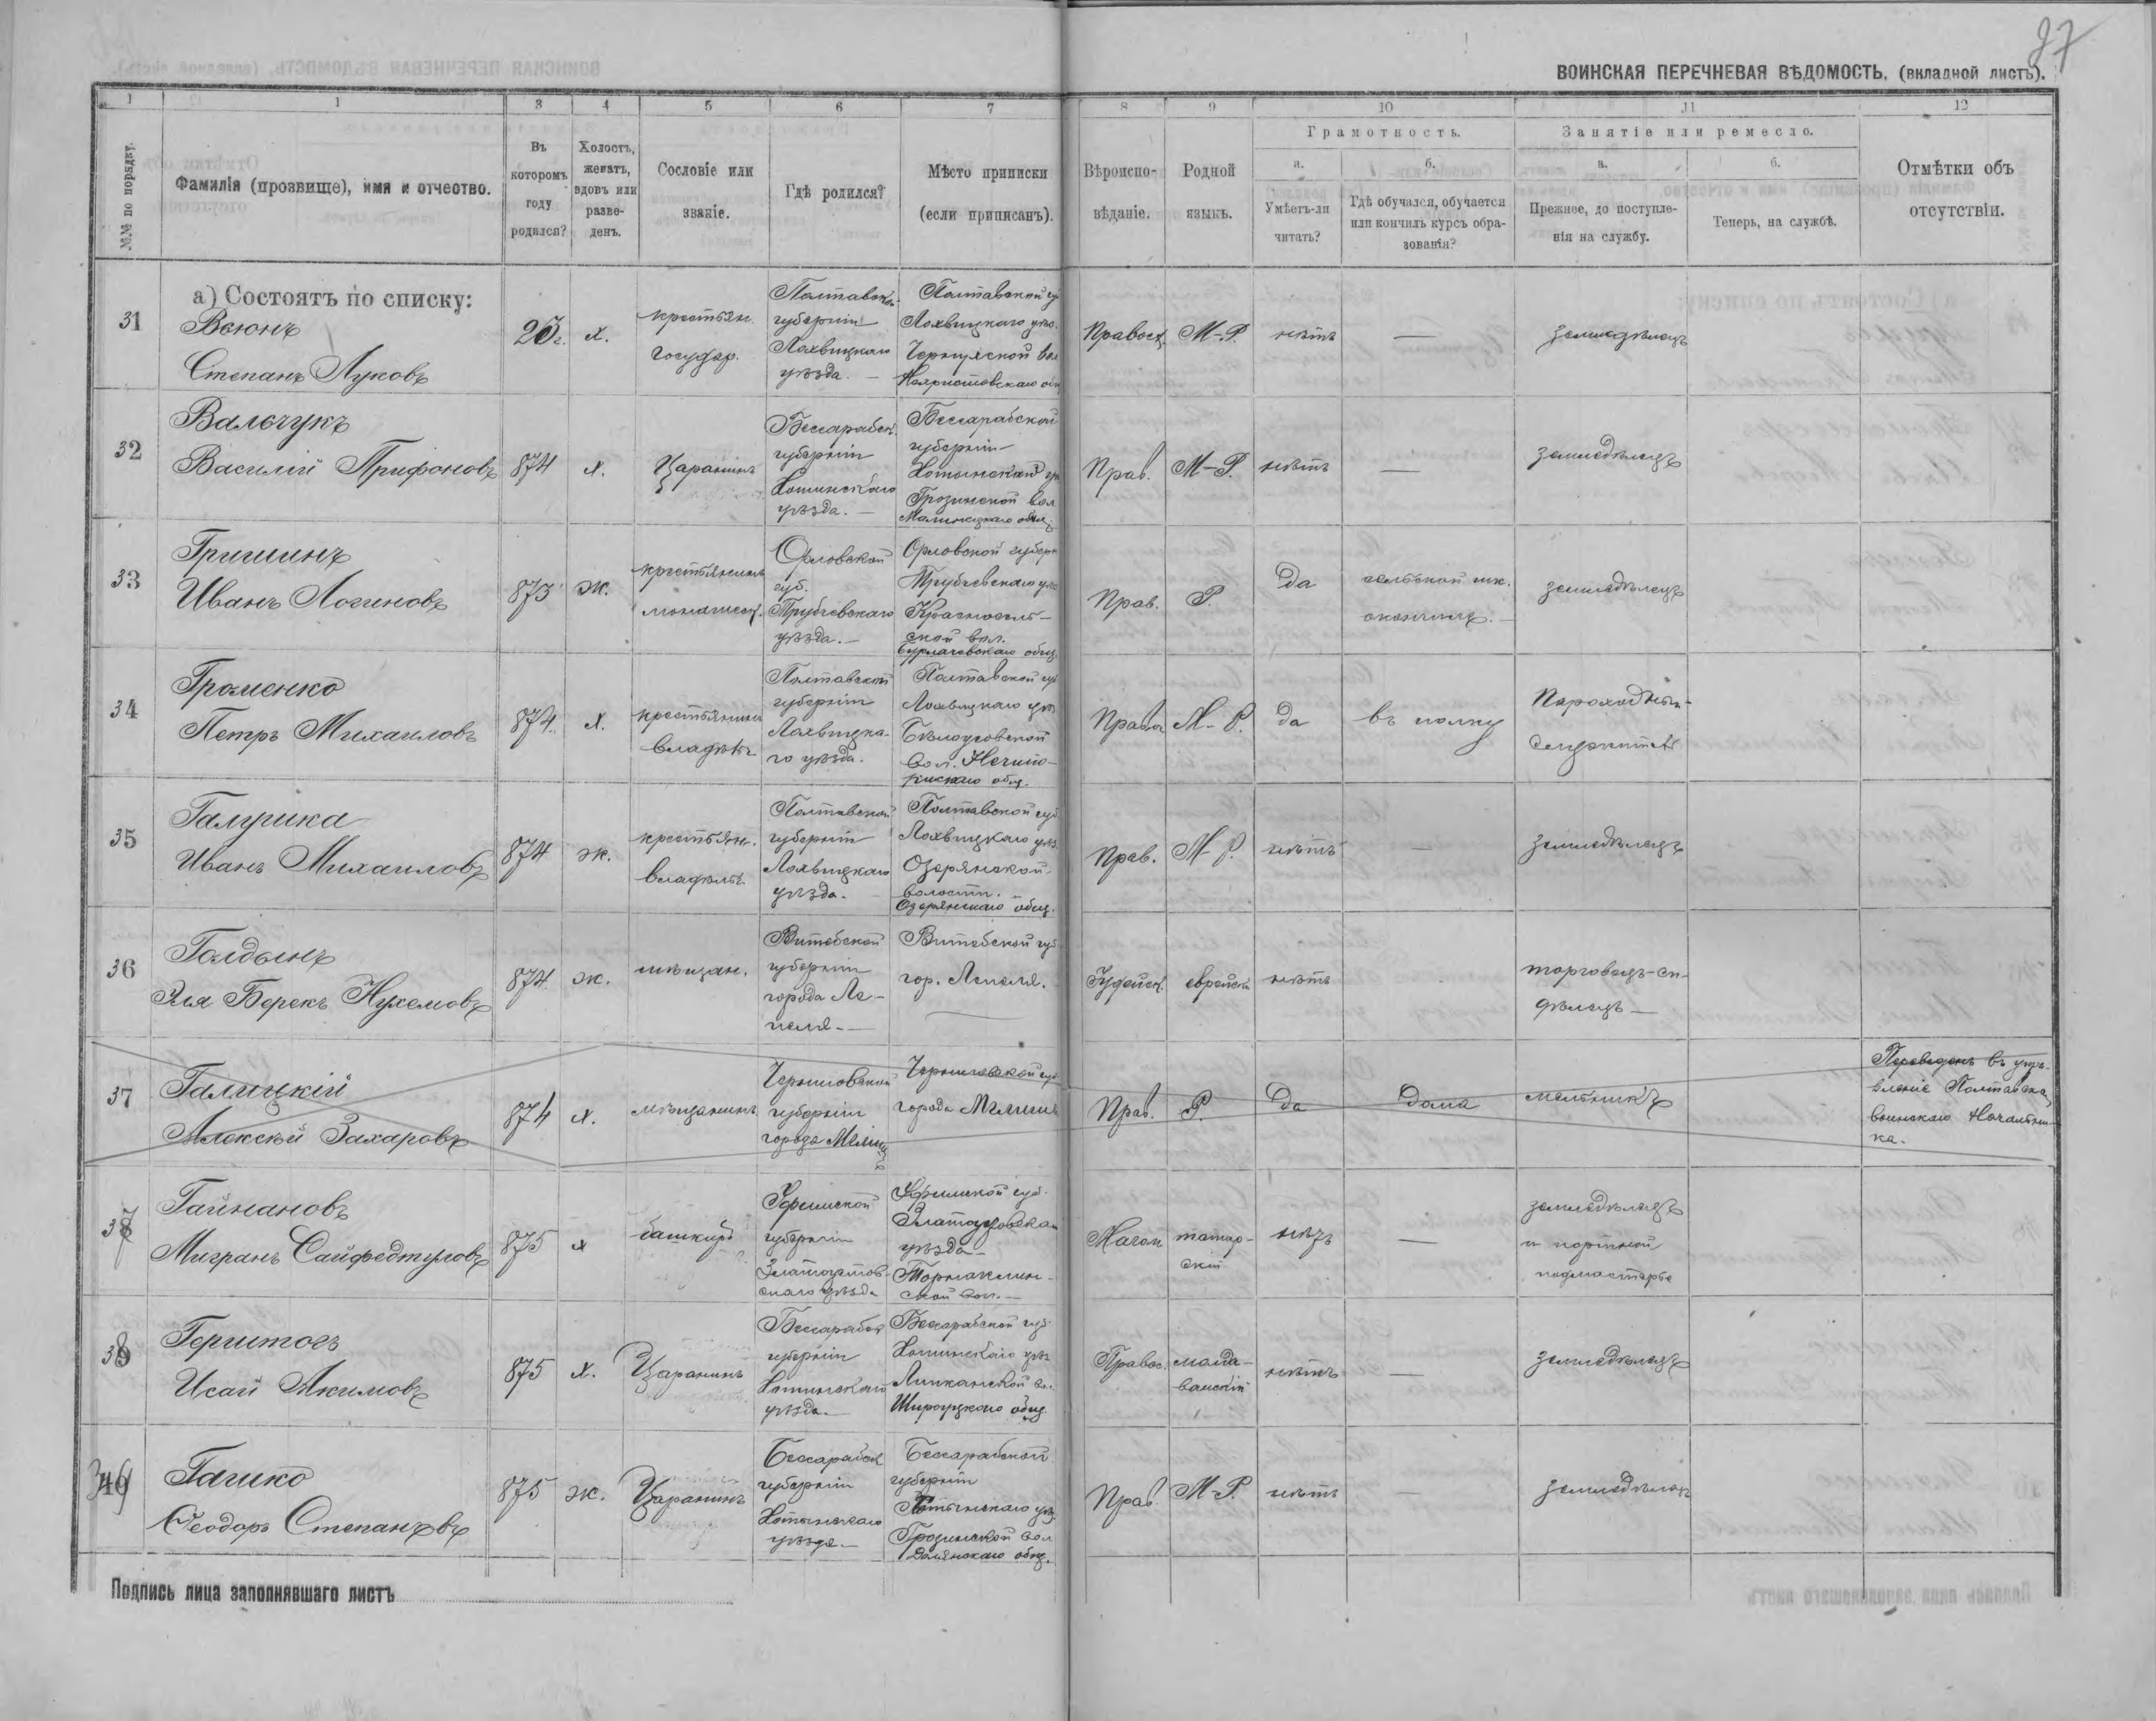 87
ВОИНСКАЯ ПЕРЕЧНЕВАЯ ВѢДОМОСТЬ, (вкладной листъ).
1 1 3 4 5 6 7 8 9 10 11 12
№№ по порядку.
Фамилія (прозвище), имя и отчество.
Въ которомъ году родился?
Холостъ, женатъ, вдовъ или разведенъ.
Сословіе или званіе.
Гдѣ родился?
Мѣсто приписки (если приписанъ).
Вѣроисповѣданіе.
Родной языкъ.
Грамотность.
а. Умѣетъ-ли читать?
б. Гдѣ обучался, обучается или кончилъ курсъ образованія?
Занятіе или ремесло.
а. Прежнее, до поступленія на службу.
б. Теперь, на службѣ.
Отмѣтки объ отсутствіи.
а) Состоятъ по списку:
31 Вьюнъ
Степанъ Луковъ
х.
крестьян. государ.
Полтавской губерніи Лохвицкаго уѣзда. —
Полтавской гу Лохвицкаго уѣз.
Правосл. М-Р. нѣтъ — земледѣлецъ
32 Вальчукъ
Василій Трифоновъ 874 х. Царанинъ
Бессарабск. губерніи Хотинскаго уѣзда. —
Бессарабской губерніи
Прав. М-Р. нѣтъ — земледѣлецъ
33 Гришинъ
Иванъ Логиновъ 873 ж. крестьянинъ
Орловской губ. Трубчевскаго уѣзда. —
Орловской губерн Трубчевскаго уѣз Красносель-ской вол.
Прав. Р. Да сельской шк. окончилъ. — земледѣлецъ
34 Громенко
Петръ Михаиловъ 874. х. крестьянинъ владѣл.
Полтавской губерніи Лохвицка-го уѣзда.
Полтавской губ Лохвицкаго уѣз
М-Р. да въ полку
35 Галушка
Иванъ Михаиловъ 874 ж. крестьян. владѣль.
Полтавской губерніи Лохвицкаго уѣзда.
Полтавской губ Лохвицкаго уѣз. Озерянской волости. Озерянскаго общ.
Прав. М-Р. нѣтъ — земледѣлецъ
36 Голдынъ
Эля Берекъ Нухемовъ 874 ж. мѣщан.
Витебской губерніи города Ле-пеля —
Витебской губ гор. Лепеля.
Іудейск. еврейск нѣтъ
торговецъ-си-дѣлецъ —
37 Галицкій
Алексѣй Захаровъ 874 х. мѣщанинъ
Черниговской губерніи города
Черниговской губ города
Прав. Р. Да дома мельникъ
Переведенъ въ упра-вленіе Полтавскаго воинскаго Начальни-ка.
37 Гайнановъ
875 х башкиръ
Уфимской губерніи Златоустов-скаго уѣзда
Уфимской губ. Златоустовскаго уѣзда —
Магом татар-скій нѣтъ —
земледѣлецъ и портной подмастерье
38 Герштогъ
Исай Акимовъ 875 х. Царанинъ
Бессарабск губерніи Хотинскаго уѣзда. —
Бессарабской губ Хотинскаго уѣз Липканской во. Широуцкаго общ.
Правос. молда-ванскій нѣтъ — земледѣлецъ
39 Гашко
Ѳеодоръ Степановъ 875 ж. Царанинъ
Бессарабск губерніи Хотинскаго уѣзда —
Бессарабской губерніи Хотинскаго уѣз
Прав. М-Р. нѣтъ — земледѣлецъ
Подпись лица заполнявшаго листъ